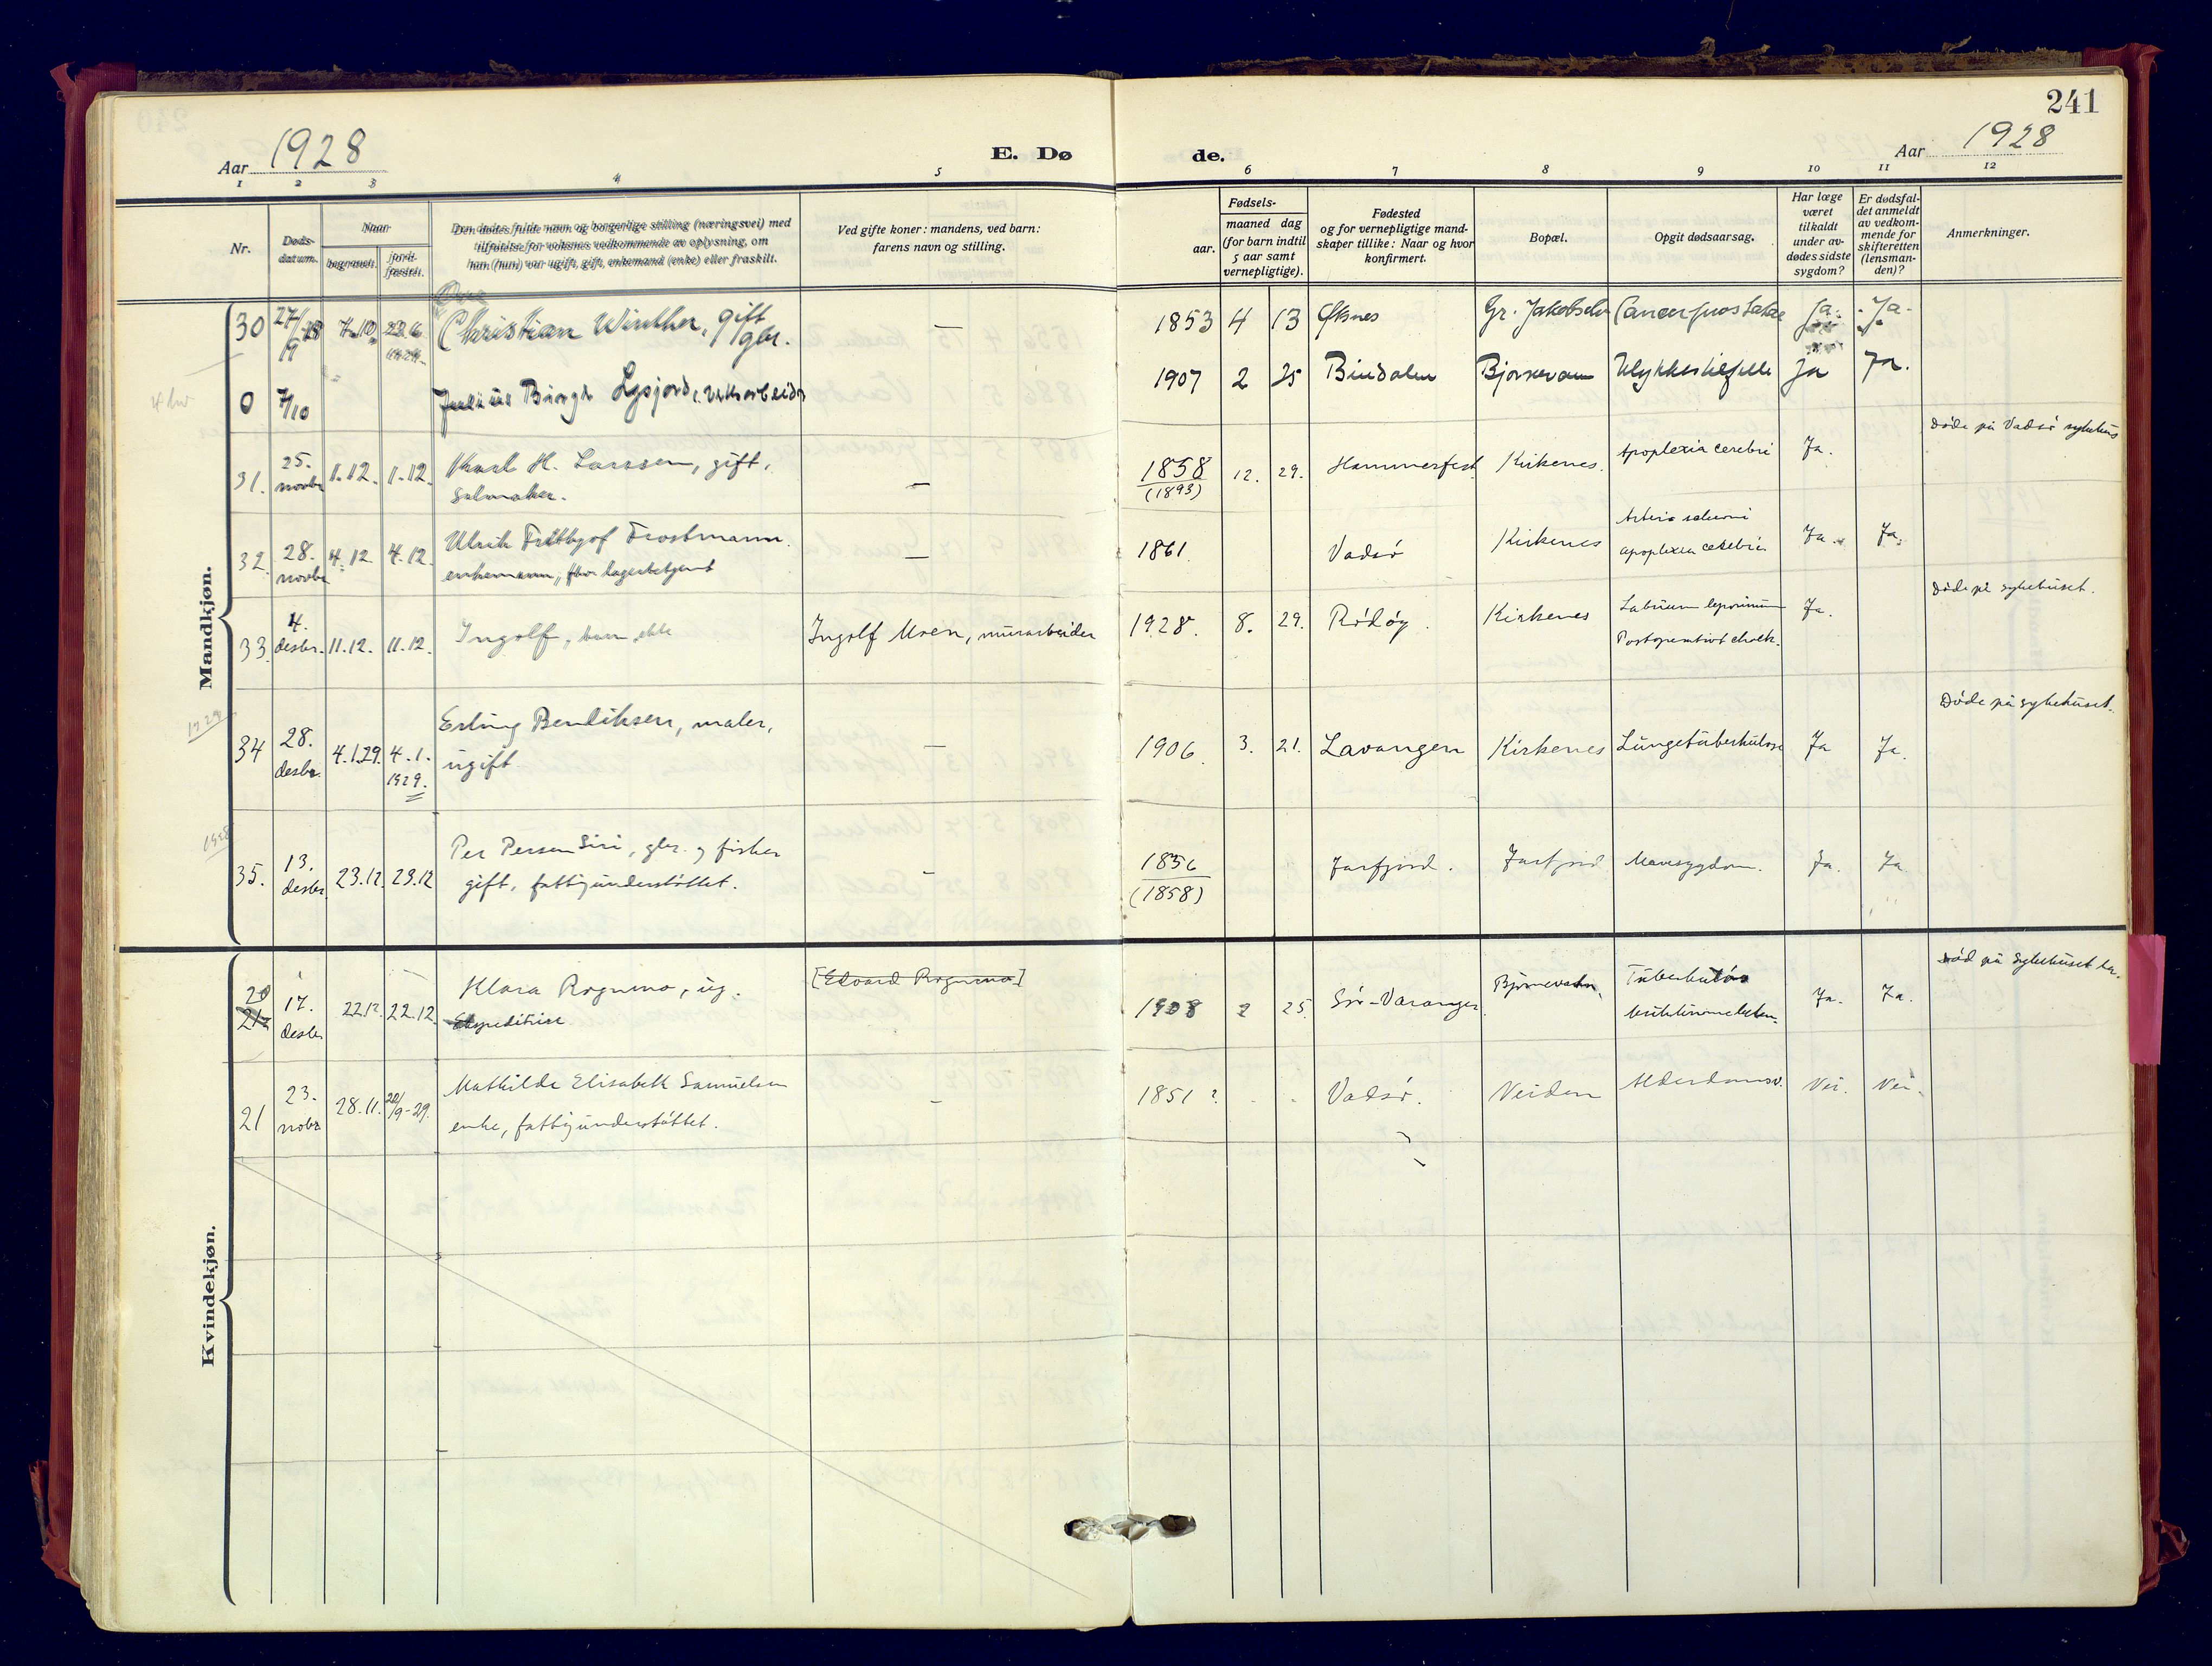 241
Aar 1928 E. Dø de. Aar 1928
1 2 3 4 5 6 7 8 9 10 11 12
Nr.
Døds-
datum.
Naar
begravet.
jord-
fæstet.
Den dødes fulde navn og borgerlige stilling (næringsvei) med
tilføielse for voksnes vedkommende av oplysning, om
han (hun) var ugift, gift, enkemand (enke) eller fraskilt.
Ved gifte koner: mandens, ved barn:
farens navn og stilling.
Fødsels-
aar.
maaned dag
(for barn indtil
5 aar samt
vernepligtige).
Fødested
og for vernepligtige mand-
skaper tillike: Naar og hvor
konfirmert.
Bopæl.
Opgit dødsaarsag.
Har læge
været
tilkaldt
under av-
dødes sidste
sygdom?
Er dødsfal-
det anmeldt
av vedkom-
mende for
skifteretten
(lensman-
den)?
Anmerkninger.
Mandkjøn.
30 27/9 7.10 23.6 1929. Christian Winther, gift gbr. — 1853 4 13 Øksnes Gr. Jakobselv Cancer prostatae Ja. Ja.
0 7/10 Julius Birger Lysjord, 1907 2 25 Bindalen Bjørnevann Ulykkestilfelle Ja Ja.
31. 25. novbr 1.12. 1.12. Karl H. Larssen, gift,
salmaker. — 1858 (1893) 12. 29. Hammerfest Kirkenes. Apoplexia cerebri Ja. Døde på Vadsø sykehus
32. 28. novbr 4.12 4.12. Ulrik Fritthjof Frostmann.
enkemann, — 1861 Vadsø Kirkenes
apoplexia cerebri Ja. Ja.
33. 4. desbr. 11.12. 11.12. Ingolf, barn, ekte Ingolf Moen, murarbeider 1928. 8. 29. Rødøy. Kirkenes Labium leporinum
Postoperativt chock. Ja. Døde på sykehuset.
1929
34 28. desbr. 4.1.29. 4.1. 1929. Erling Bendiksen, maler,
ugift. — 1906. 3. 21. Lavangen Kirkenes Lungetuberkulose Ja Ja. Døde på sykehuset.
1928
35. 13. desbr. 23.12. 23.12 Per Persen Siri, gbr. og fisker
gift, fattigunderstøttet. - 1856 (1858) Jarfjord. Jarfjord Mavesygdom. Ja. Ja
Kvindekjøn.
20 21 17. desbr 22.12. 22.12. Klara Rognmo, ug.
Ekspeditrise [Edvard Rognmo] 1908 2 25. Sør-Varanger Bjørnevatn. Tuberkuløs
Ja. Ja. Død på sykehuset
21 23. novbr 28.11. 22/9-29. Mathilde Elisabeth Samuelsen
enke, fattigunderstøttet. - 1851? Vadsø. Neiden Alderdomssv. Nei. Nei.